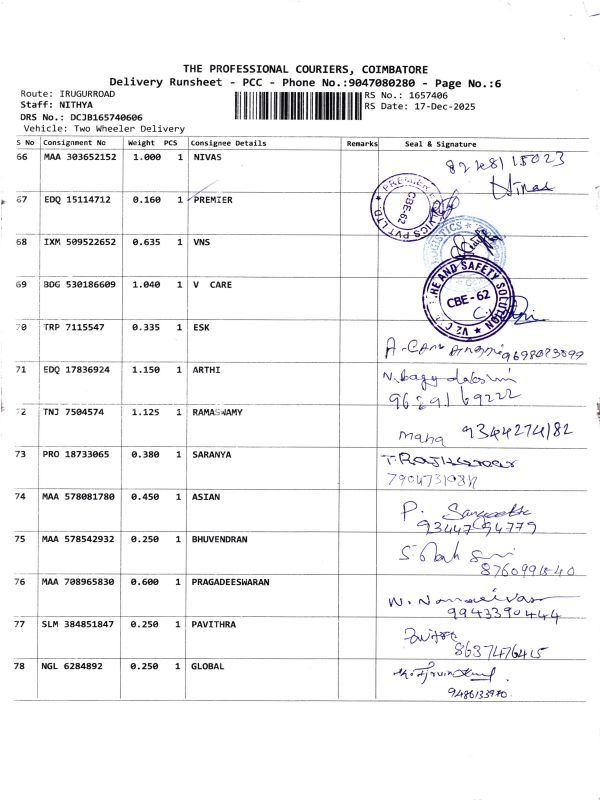 THE PROFESSIONAL COURIERS, COIMBATORE
Delivery Runsheet - PCC - Phone No.:9047080280 - Page No.:6
Route: IRUGURROAD
Staff: NITHYA
DRS No.: DCJB165740606
Vehicle: Two Wheeler Delivery
RS No.: 1657406
RS Date: 17-Dec-2025
S No Consignment No Weight PCS Consignee Details Remarks Seal & Signature
66 MAA 303652152 1.000 1 NIVAS
Nivas
67 EDQ 15114712 0.160 1 PREMIER
CBE-62
68 IXM 509522652 0.635 1 VNS
69 BDG 530186609 1.040 1 V CARE
FIRE AND SAFETY SOLUTION
CBE-62
70 TRP 7115547 0.335 1 ESK
71 EDQ 17836924 1.150 1 ARTHI
9629169222
72 TNJ 7504574 1.125 1 RAMASWAMY
maha 9344274182
73 PRO 18733065 0.380 1 SARANYA
74 MAA 578081780 0.450 1 ASIAN
P.
9344794779
75 MAA 578542932 0.250 1 BHUVENDRAN
76 MAA 708965830 0.600 1 PRAGADEESWARAN
9943390444
77 SLM 384851847 0.250 1 PAVITHRA
8637476415
78 NGL 6284892 0.250 1 GLOBAL
9486133970.